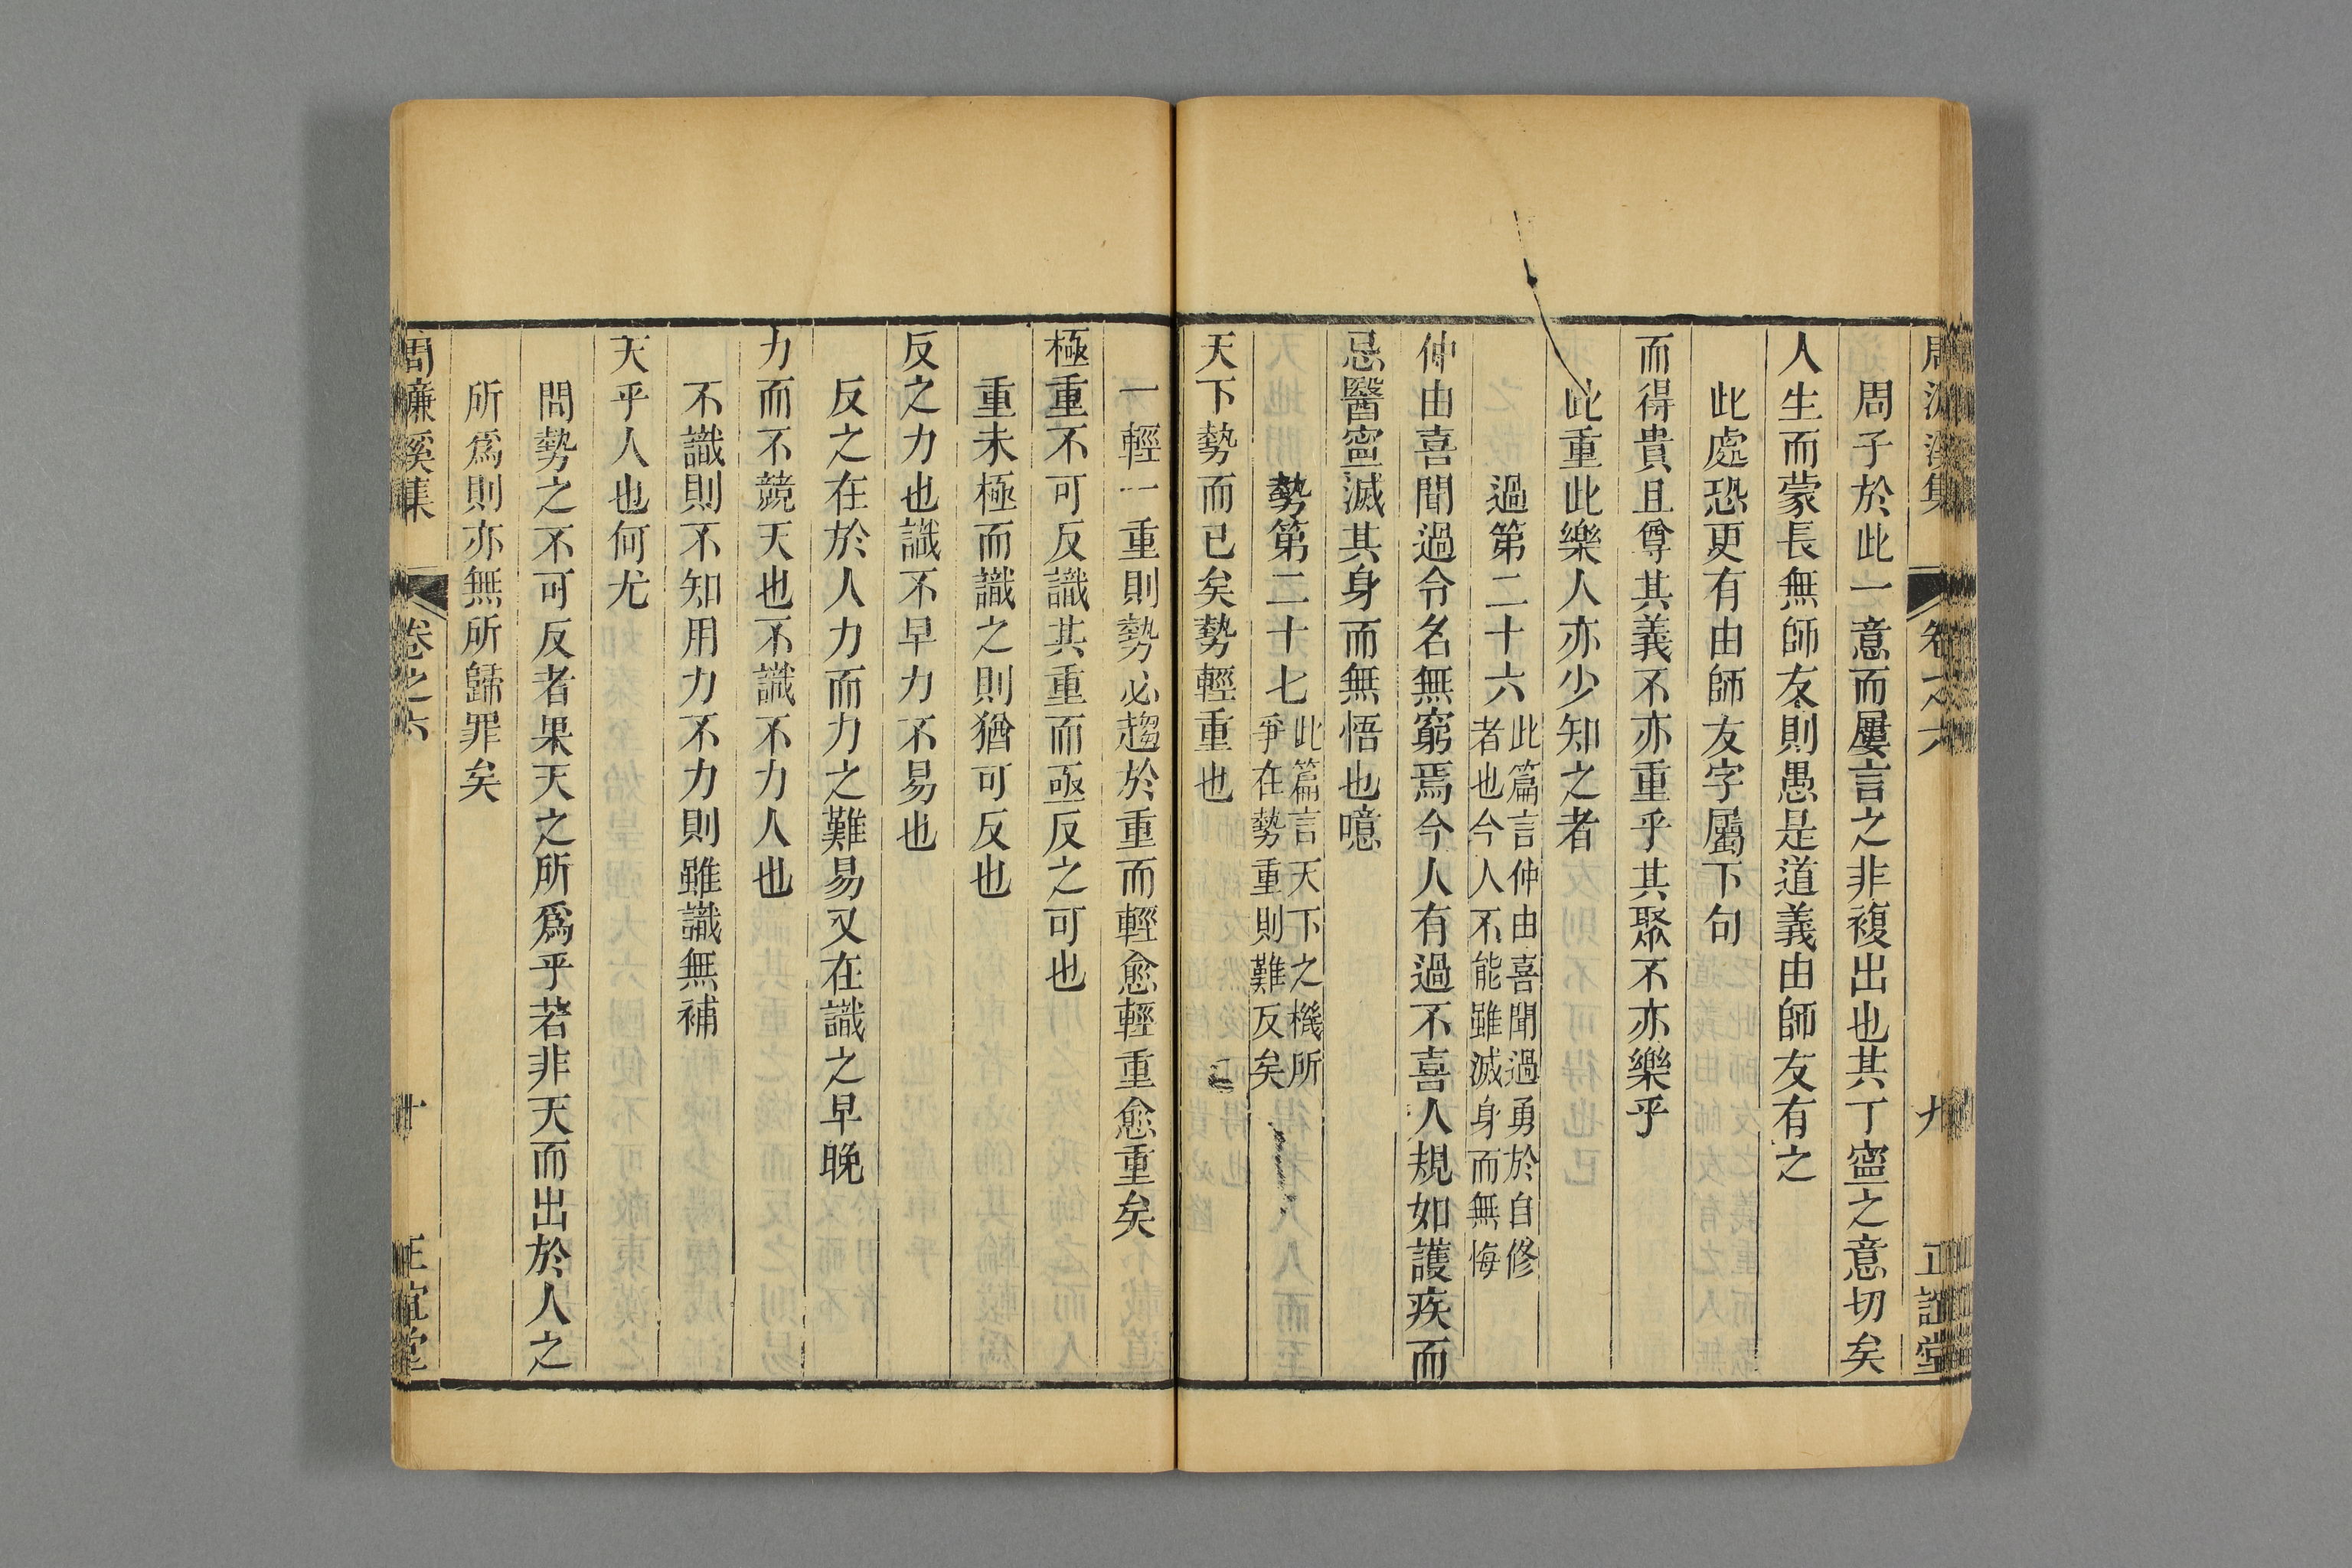 周濂溪集 卷之六 九 正誼堂
周子於此一意而屢言之非複出也其丁寧之意切矣
人生而蒙長無師友則愚是道義由師友有之
此處恐更有由師友字屬下句
而得貴且尊其義不亦重乎其聚不亦樂乎
此重此樂人亦少知之者
過第二十六
此篇言仲由喜聞過勇於自修
者也今人不能雖滅身而無悔
仲由喜聞過令名無窮焉今人有過不喜人規如護疾而
忌醫寧滅其身而無悟也噫
勢第二十七
此篇言天下之機所
爭在勢重則難反矣
天下勢而已矣勢輕重也
一輕一重則勢必趨於重而輕愈輕重愈重矣
極重不可反識其重而亟反之可也
重未極而識之則猶可反也
反之力也識不早力不易也
反之在於人力而力之難易又在識之早晚
力而不競天也不識不力人也
不識則不知用力不力則雖識無補
天乎人也何尤
問勢之不可反者果天之所爲乎若非天而出於人之
所爲則亦無所歸罪矣
周濂溪集 卷之六 十 正誼堂